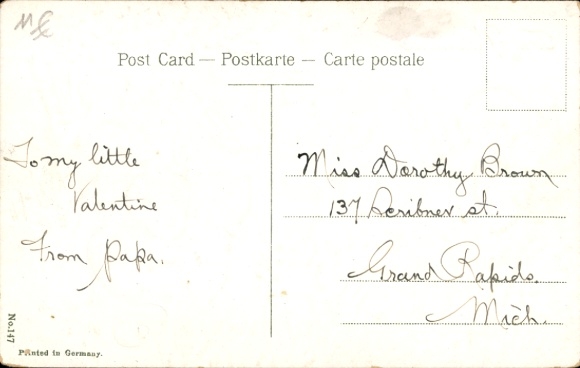 Post Card — Postkarte — Carte postale
To my little
Valentine
From papa.
Miss Dorothy Brown
137 Scribner st.
Grand Rapids.
Mich.
No. 147
Printed in Germany.